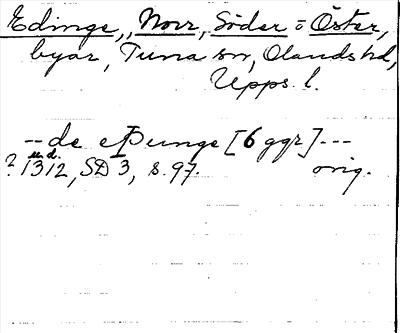 Edinge, Norr, Söder = Öster,
byar, Tuna sn, Olands hd,
Upps. l.
-- de eþunge [6 ggr] ---
u.d.
? 1312, SD 3, s. 97. orig.